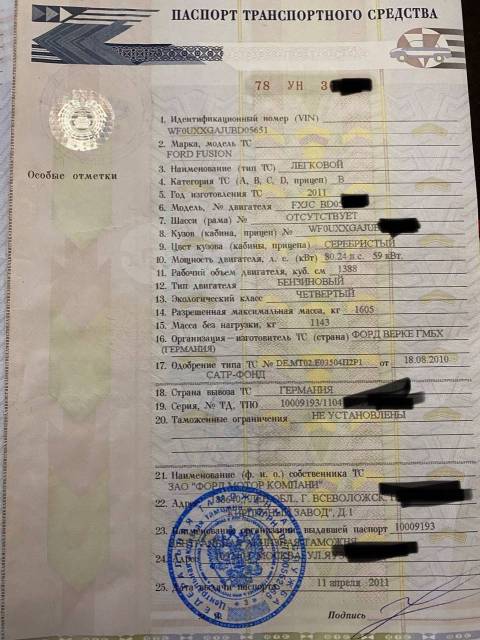 ПАСПОРТ ТРАНСПОРТНОГО СРЕДСТВА
78 УН 3
1. Идентификационный номер (VIN)
WF0UXXGAJUBD05651
2. Марка, модель ТС
FORD FUSION
Особые отметки
3. Наименование (тип ТС) ЛЕГКОВОЙ
4. Категория ТС (А, В, С, D, прицеп) B
5. Год изготовления ТС 2011
6. Модель, № двигателя FXJC BD05
7. Шасси (рама) № ОТСУТСТВУЕТ
8. Кузов (кабина, прицеп) № WF0UXXGAJUB
9. Цвет кузова (кабины, прицепа) СЕРЕБРИСТЫЙ
10. Мощность двигателя, л. с. (кВт) 80.24 л.с. 59 кВт.
11. Рабочий объем двигателя, куб. см 1388
12. Тип двигателя БЕНЗИНОВЫЙ
13. Экологический класс ЧЕТВЕРТЫЙ
14. Разрешенная максимальная масса, кг 1605
15. Масса без нагрузки, кг 1143
16. Организация—изготовитель ТС (страна) ФОРД ВЕРКЕ ГМБХ
(ГЕРМАНИЯ)
17. Одобрение типа ТС № DE.MT02.E03504П2P1 от 18.08.2010
САТР-ФОНД
18. Страна вывоза ТС ГЕРМАНИЯ
19. Серия, № ТД, ТПО 10009193/1104
20. Таможенные ограничения НЕ УСТАНОВЛЕНЫ
21. Наименование (ф. и. о.) собственника ТС
ЗАО "ФОРД МОТОР КОМПАНИ"
22. Адрес ОБЛ., Г. ВСЕВОЛОЖСК,
ЗАВОД", Д.1
23. Наименование организации, выдавшей паспорт 10009193
ТАМОЖНЯ
24. Адрес Г. МОСКВА, УЛ.ЯУЗ
25. Дата выдачи паспорта 11 апреля 2011
Подпись